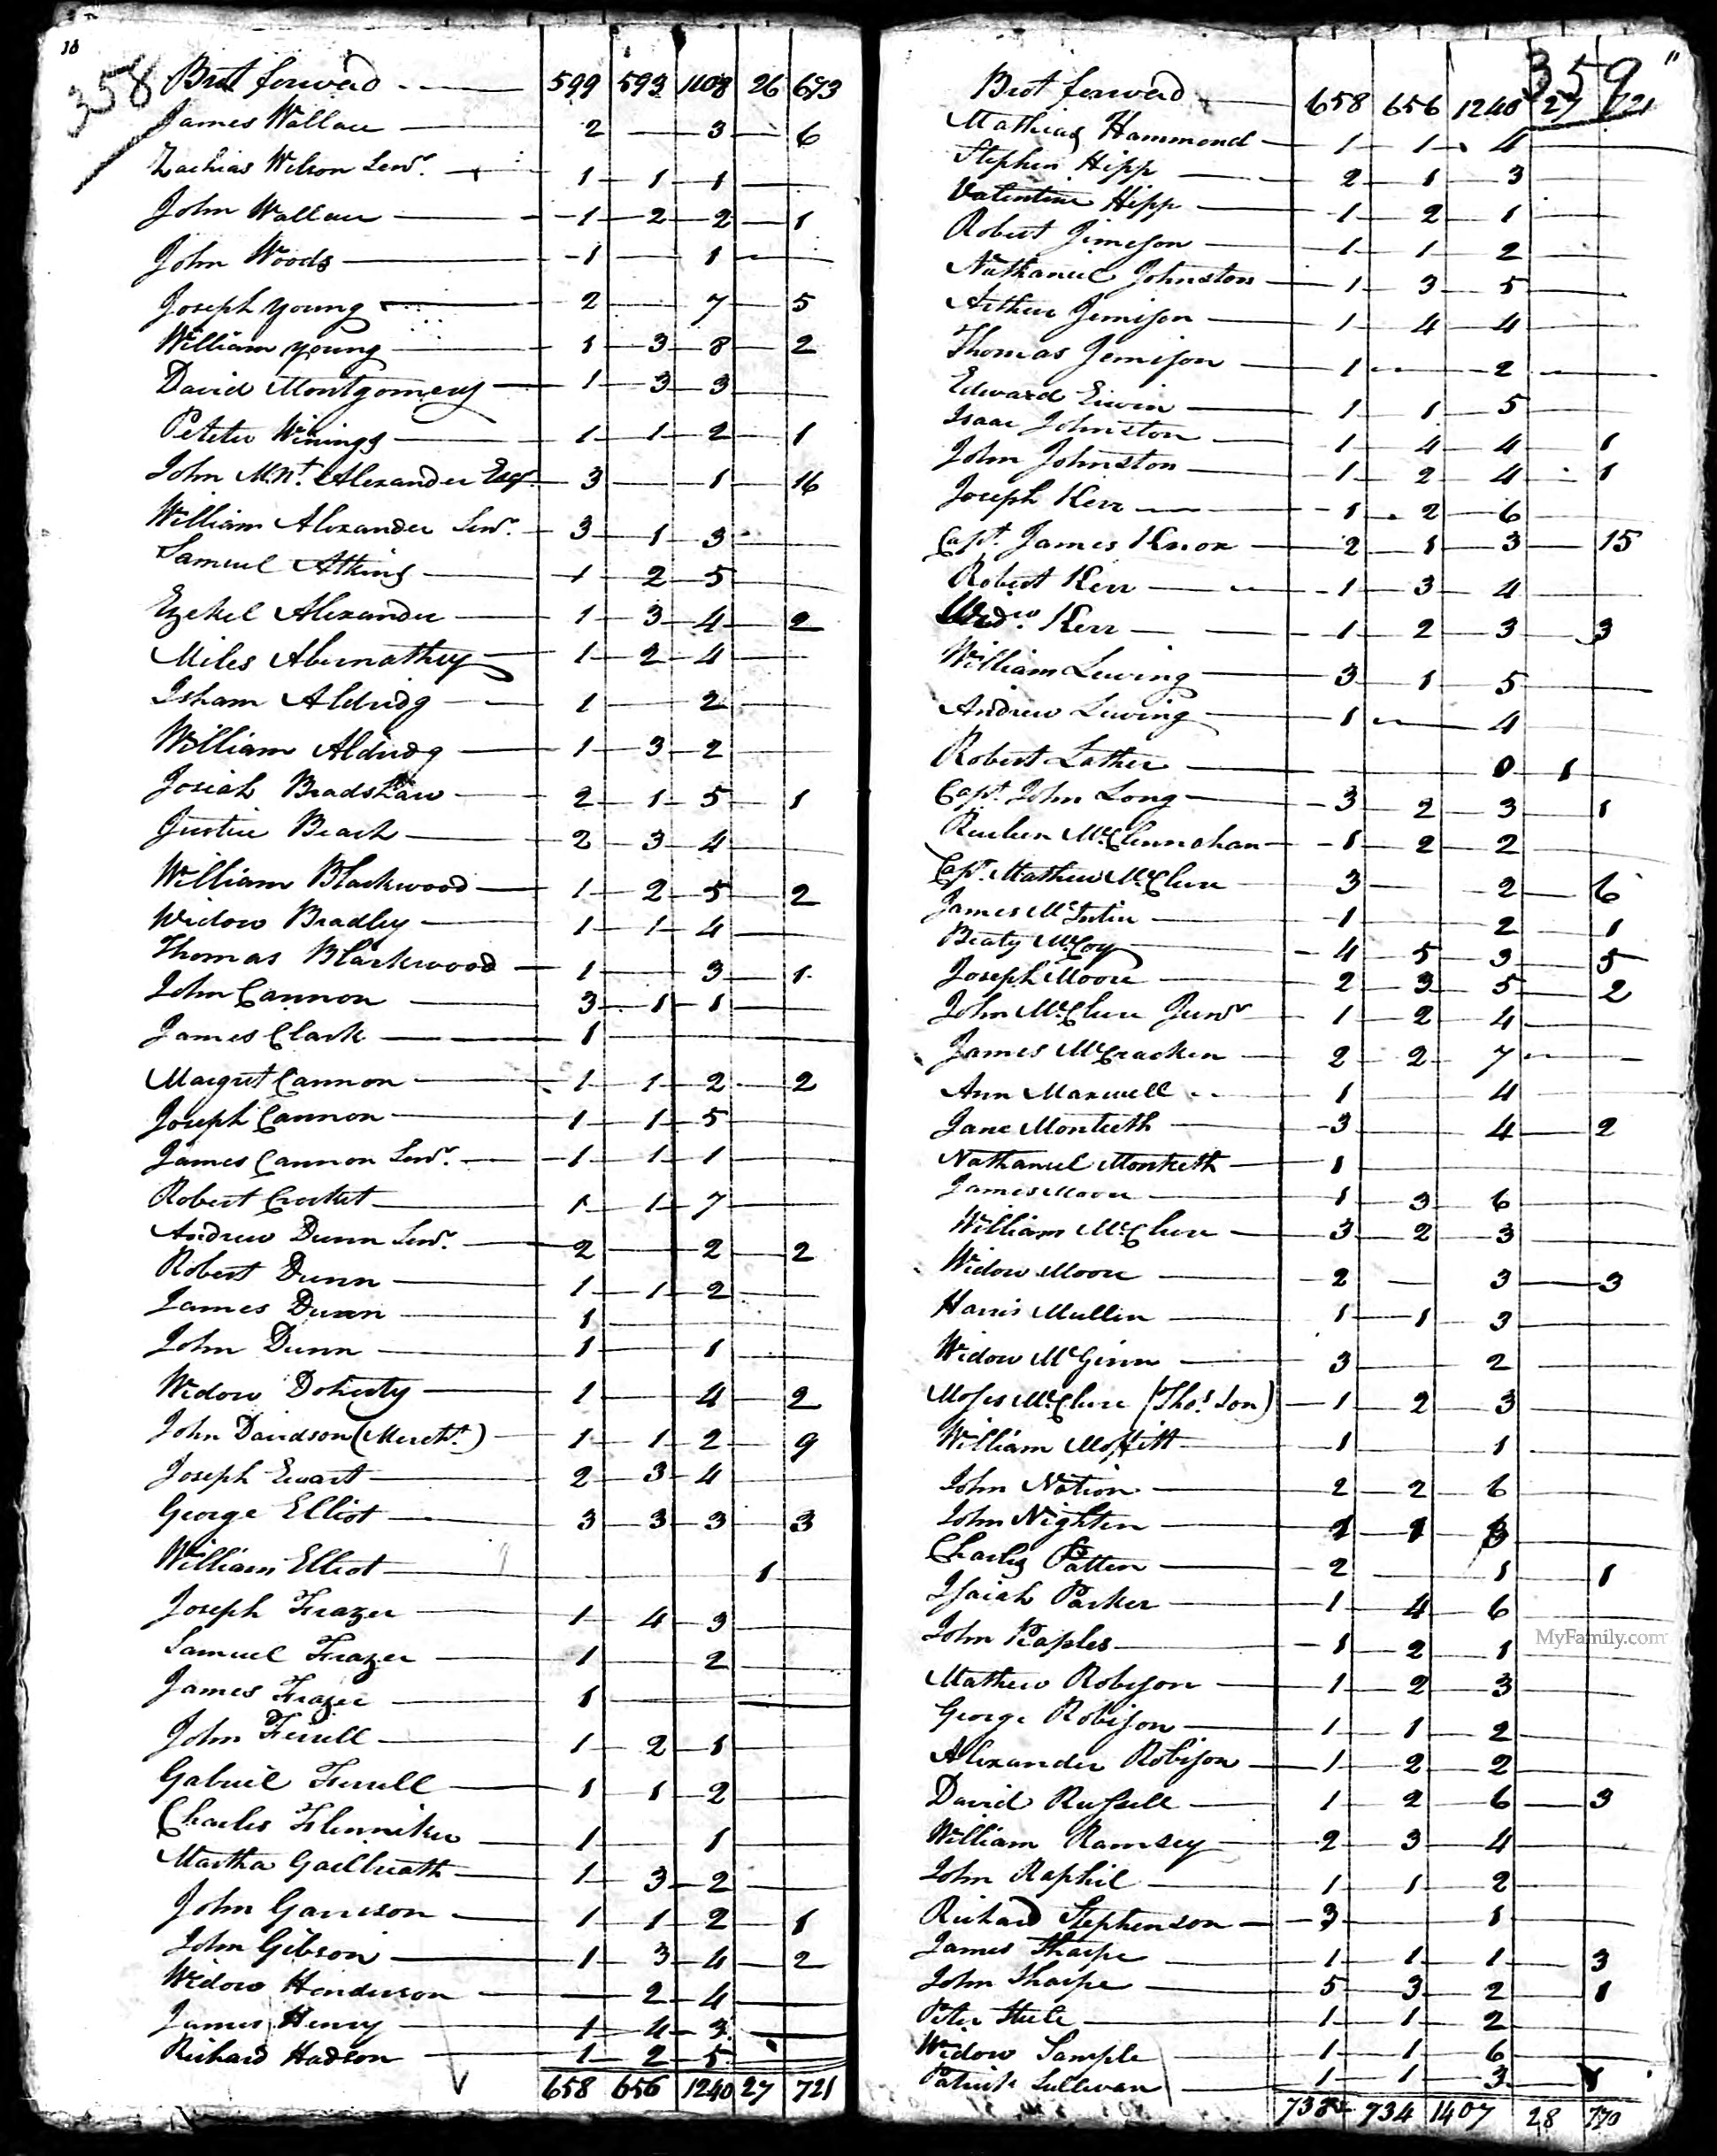 18
358
Brot forward 599 593 1108 26 673
James Wallace 2 — 3 — 6
Zachias Wilson Senr. 1 1 1
John Wallace 1 2 2 — 1
John Woods 1 — 1
Joseph Young 2 — 7 — 5
William Young 1 3 8 — 2
David Montgomery 1 3 3
Peteter Winings 1 1 2 — 1
John McNt. Alexander Esqr. 3 — 1 — 16
William Alexander Senr. 3 1 3
Samuel Atkins 1 2 5
Ezekel Alexander 1 3 4 — 2
Miles Abernathey 1 2 4
Isham Aldridg 1 — 2
William Aldridg 1 3 2
Josiah Bradshaw 2 1 5 — 1
Justice Beach 2 3 4
William Blackwood 1 2 5 — 2
Widow Bradley 1 1 4
Thomas Blackwood 1 — 3 — 1
John Cannon 3 1 1
James Clark 1
Margret Cannon 1 1 2 — 2
Joseph Cannon 1 1 5
James Cannon Senr. 1 1 1
Robert Crocket 1 1 7
Andrew Dunn Senr. 2 — 2 — 2
Robert Dunn 1 1 2
James Dunn 1
John Dunn 1 — 1
Widow Doherty 1 — 4 — 2
John Davidson (Mercht.) 1 1 2 — 9
Joseph Ewart 2 3 4
George Elliot 3 3 3 — 3
William Elliot — — — 1
Joseph Frazer 1 4 3
Samuel Frazer 1 — 2
James Frazer 1
John Ferrell 1 2 1
Gabriel Ferrell 1 1 2
Charles Flenniken 1 — 1
Martha Gaillreath 1 3 2
John Garrison 1 1 2 — 1
John Gibson 1 3 4 — 2
Widow Henderson — 2 4
James Henry 1 4 3
Richard Hudson 1 2 5
658 656 1240 27 721
359
11
Brot forward 658 656 1240 27 721
Mathias Hammond 1 1 4
Stephen Hipp 2 1 3
Valentine Hipp 1 2 1
Robert Jemeson 1 1 2
Nathaniel Johnston 1 3 5
Arthur Jemison 1 4 4
Thomas Jemison 1 — 2
Edward Erwin 1 1 5
Isaac Johnston 1 4 4 — 1
John Johnston 1 2 4 — 1
Joseph Kerr 1 2 6
Capt. James Knox 2 1 3 — 15
Robert Kerr 1 3 4
Widw. Kerr 1 2 3 — 3
William Lewing 3 1 5
Andrew Lewing 1 — 4
Robert Lather — — 0 1
Capt. John Long 3 2 3 — 1
Reuben McClennahan 1 2 2
Capt. Mathew McClure 3 — 2 — 6
James McIntire 1 — 2 — 1
Beaty McCoy 4 5 3 — 5
Joseph Moore 2 3 5 — 2
John McClure Junr 1 2 4
James McCracken 2 2 7
Ann Maxwell 1 4
Jane Monteeth 3 — 4 — 2
Nathaniel Monteeth 1
James Moore 1 3 6
William McClure 3 2 3
Widow Moore 2 — 3 — 3
Harris Mullen 1 1 3
Widow McGinn 3 — 2
Moses McClure (Thos. Son) 1 2 3
William Moffitt 1 — 1
John Nation 2 2 6
John Nighten 1 1 3
Charles Patten 2 — 1 — 1
Isaiah Parker 1 4 6
John Peoples 1 2 1
Mathew Robison 1 2 3
George Robison 1 1 2
Alexander Robison 1 2 2
David Russell 1 2 6 — 3
William Ramsey 2 3 4
John Raphil 1 1 2
Richard Stephenson 3 — 1
James Tharpe 1 1 1 — 3
John Tharpe 5 3 2 — 1
Peter Steele 1 1 2
Widow Sample 1 1 6
Patrick Sullivan 1 1 3 — 1
738 734 1407 28 770
MyFamily.com